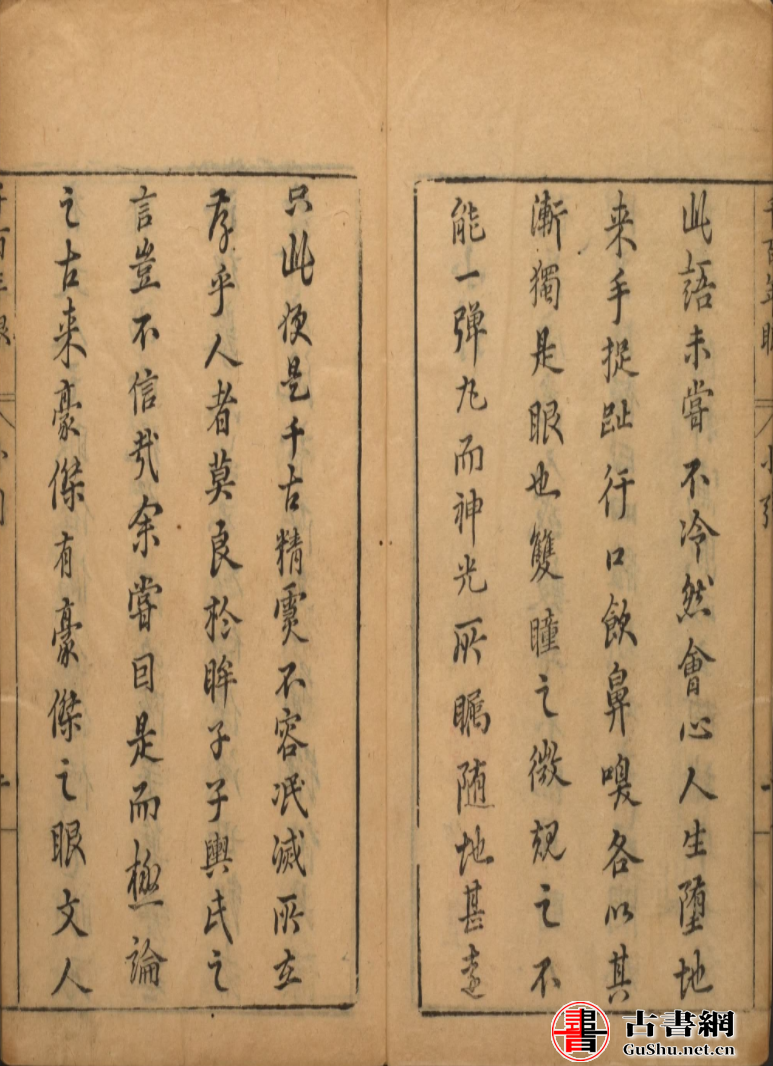 此語未嘗不冷然會心人生墮地
来手捉趾行口飲鼻嗅各以其
漸獨是眼也雙瞳之微覌之不
能一弹丸而神光所矚随地甚遠
只此便是千古精靈不容泯滅所在
存乎人者莫良於眸子子輿氏之
言豈不信哉余嘗因是而極論
之古来豪傑有豪傑之眼文人
千百年眼
小引
古書網
GuShu.net.cn